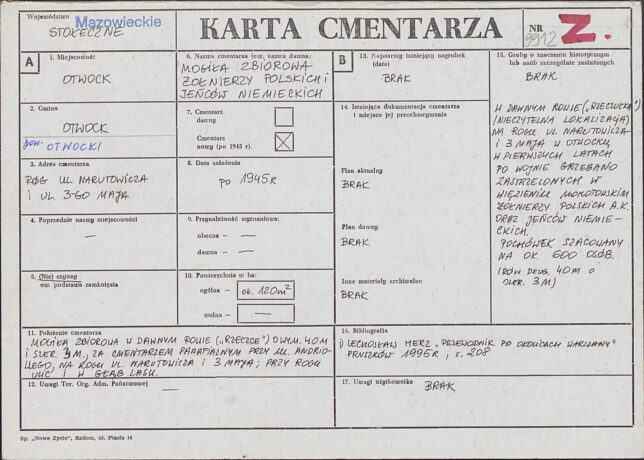 Województwo Mazowieckie
STOŁECZNE
KARTA CMENTARZA
NR
9912
Z.
A
1. Miejscowość
OTWOCK
2. Gmina
OTWOCK
pow. OTWOCKI
3. Adres cmentarza
RÓG UL. NARUTOWICZA
I UL. 3-GO MAJA
4. Poprzednie nazwy miejscowości
—
5. (Nie) czynny
ew. podstawa zamknięcia
6. Nazwa cmentarza (ew. nazwa dawna)
MOGIŁA ZBIOROWA
ŻOŁNIERZY POLSKICH I
JEŃCÓW NIEMIECKICH
7. Cmentarz
dawny
Cmentarz
nowy (po 1945 r.)
8. Data założenia
po 1945 r
9. Przynależność wyznaniowa:
obecna — —
dawna — —
10. Powierzchnia w ha:
ogólna — ok. 120 m²
wolna — —
B
13. Najstarszy istniejący nagrobek
(data)
BRAK
14. Istniejąca dokumentacja cmentarza
i miejsce jej przechowywania
Plan aktualny
BRAK
Plan dawny
BRAK
Inne materiały archiwalne
BRAK
15. Groby o znaczeniu historycznym
lub osób szczególnie zasłużonych
BRAK
W DAWNYM ROWIE („RZECZUŁKA")
(NIECZYTELNA LOKALIZACJA)
NA ROGU UL. NARUTOWICZA
I 3 MAJA W OTWOCKU,
W PIERWSZYCH LATACH
PO WOJNIE GRZEBANO
ZASTRZELONYCH W
WIĘZIENIU MOKOTOWSKIM
ŻOŁNIERZY POLSKICH A.K.
ORAZ JEŃCÓW NIEMIE-
CKICH.
POCHÓWEK SZACOWANY
NA OK. 600 OSÓB.
(RÓW DŁUG. 40 M O
SZER. 3 M)
11. Położenie cmentarza
MOGIŁA ZBIOROWA W DAWNYM ROWIE („RZECZCE") O WYM. 40 M
I SZER. 3 M, ZA CMENTARZEM PARAFIALNYM PRZY UL. ANDRIO-
LLEGO, NA ROGU UL. NARUTOWICZA I 3 MAJA; PRZY ROGU
ULIC I W GŁĄB LASU.
12. Uwagi Ter. Org. Adm. Państwowej
—
16. Bibliografia
1) LECHOSŁAW HERZ „PRZEWODNIK PO OKOLICACH WARSZAWY"
PRUSZKÓW 1995 R, s. 208
17. Uwagi użytkownika
BRAK
Sp. „Nowe Życie", Radom, ul. Ptasia 14